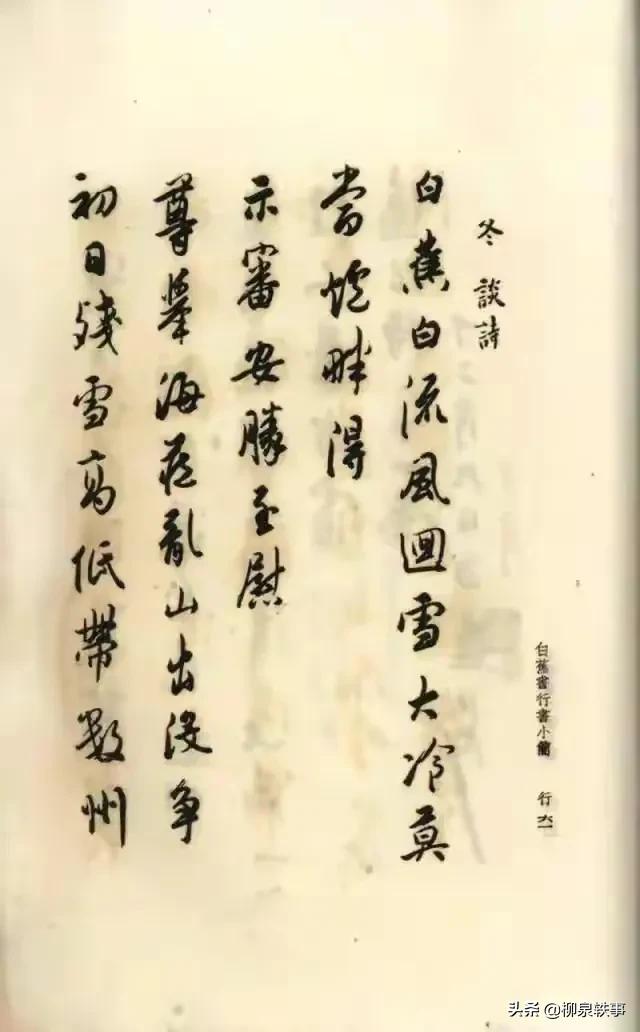 冬 談詩
白蕉白流風迴雪大冷莫
當爐畔得
示審安勝至慰
尊擧海花亂山出沒爭
初日殘雪高低帶數州
白蕉書行書小簡 行六一
头条 @柳泉轶事